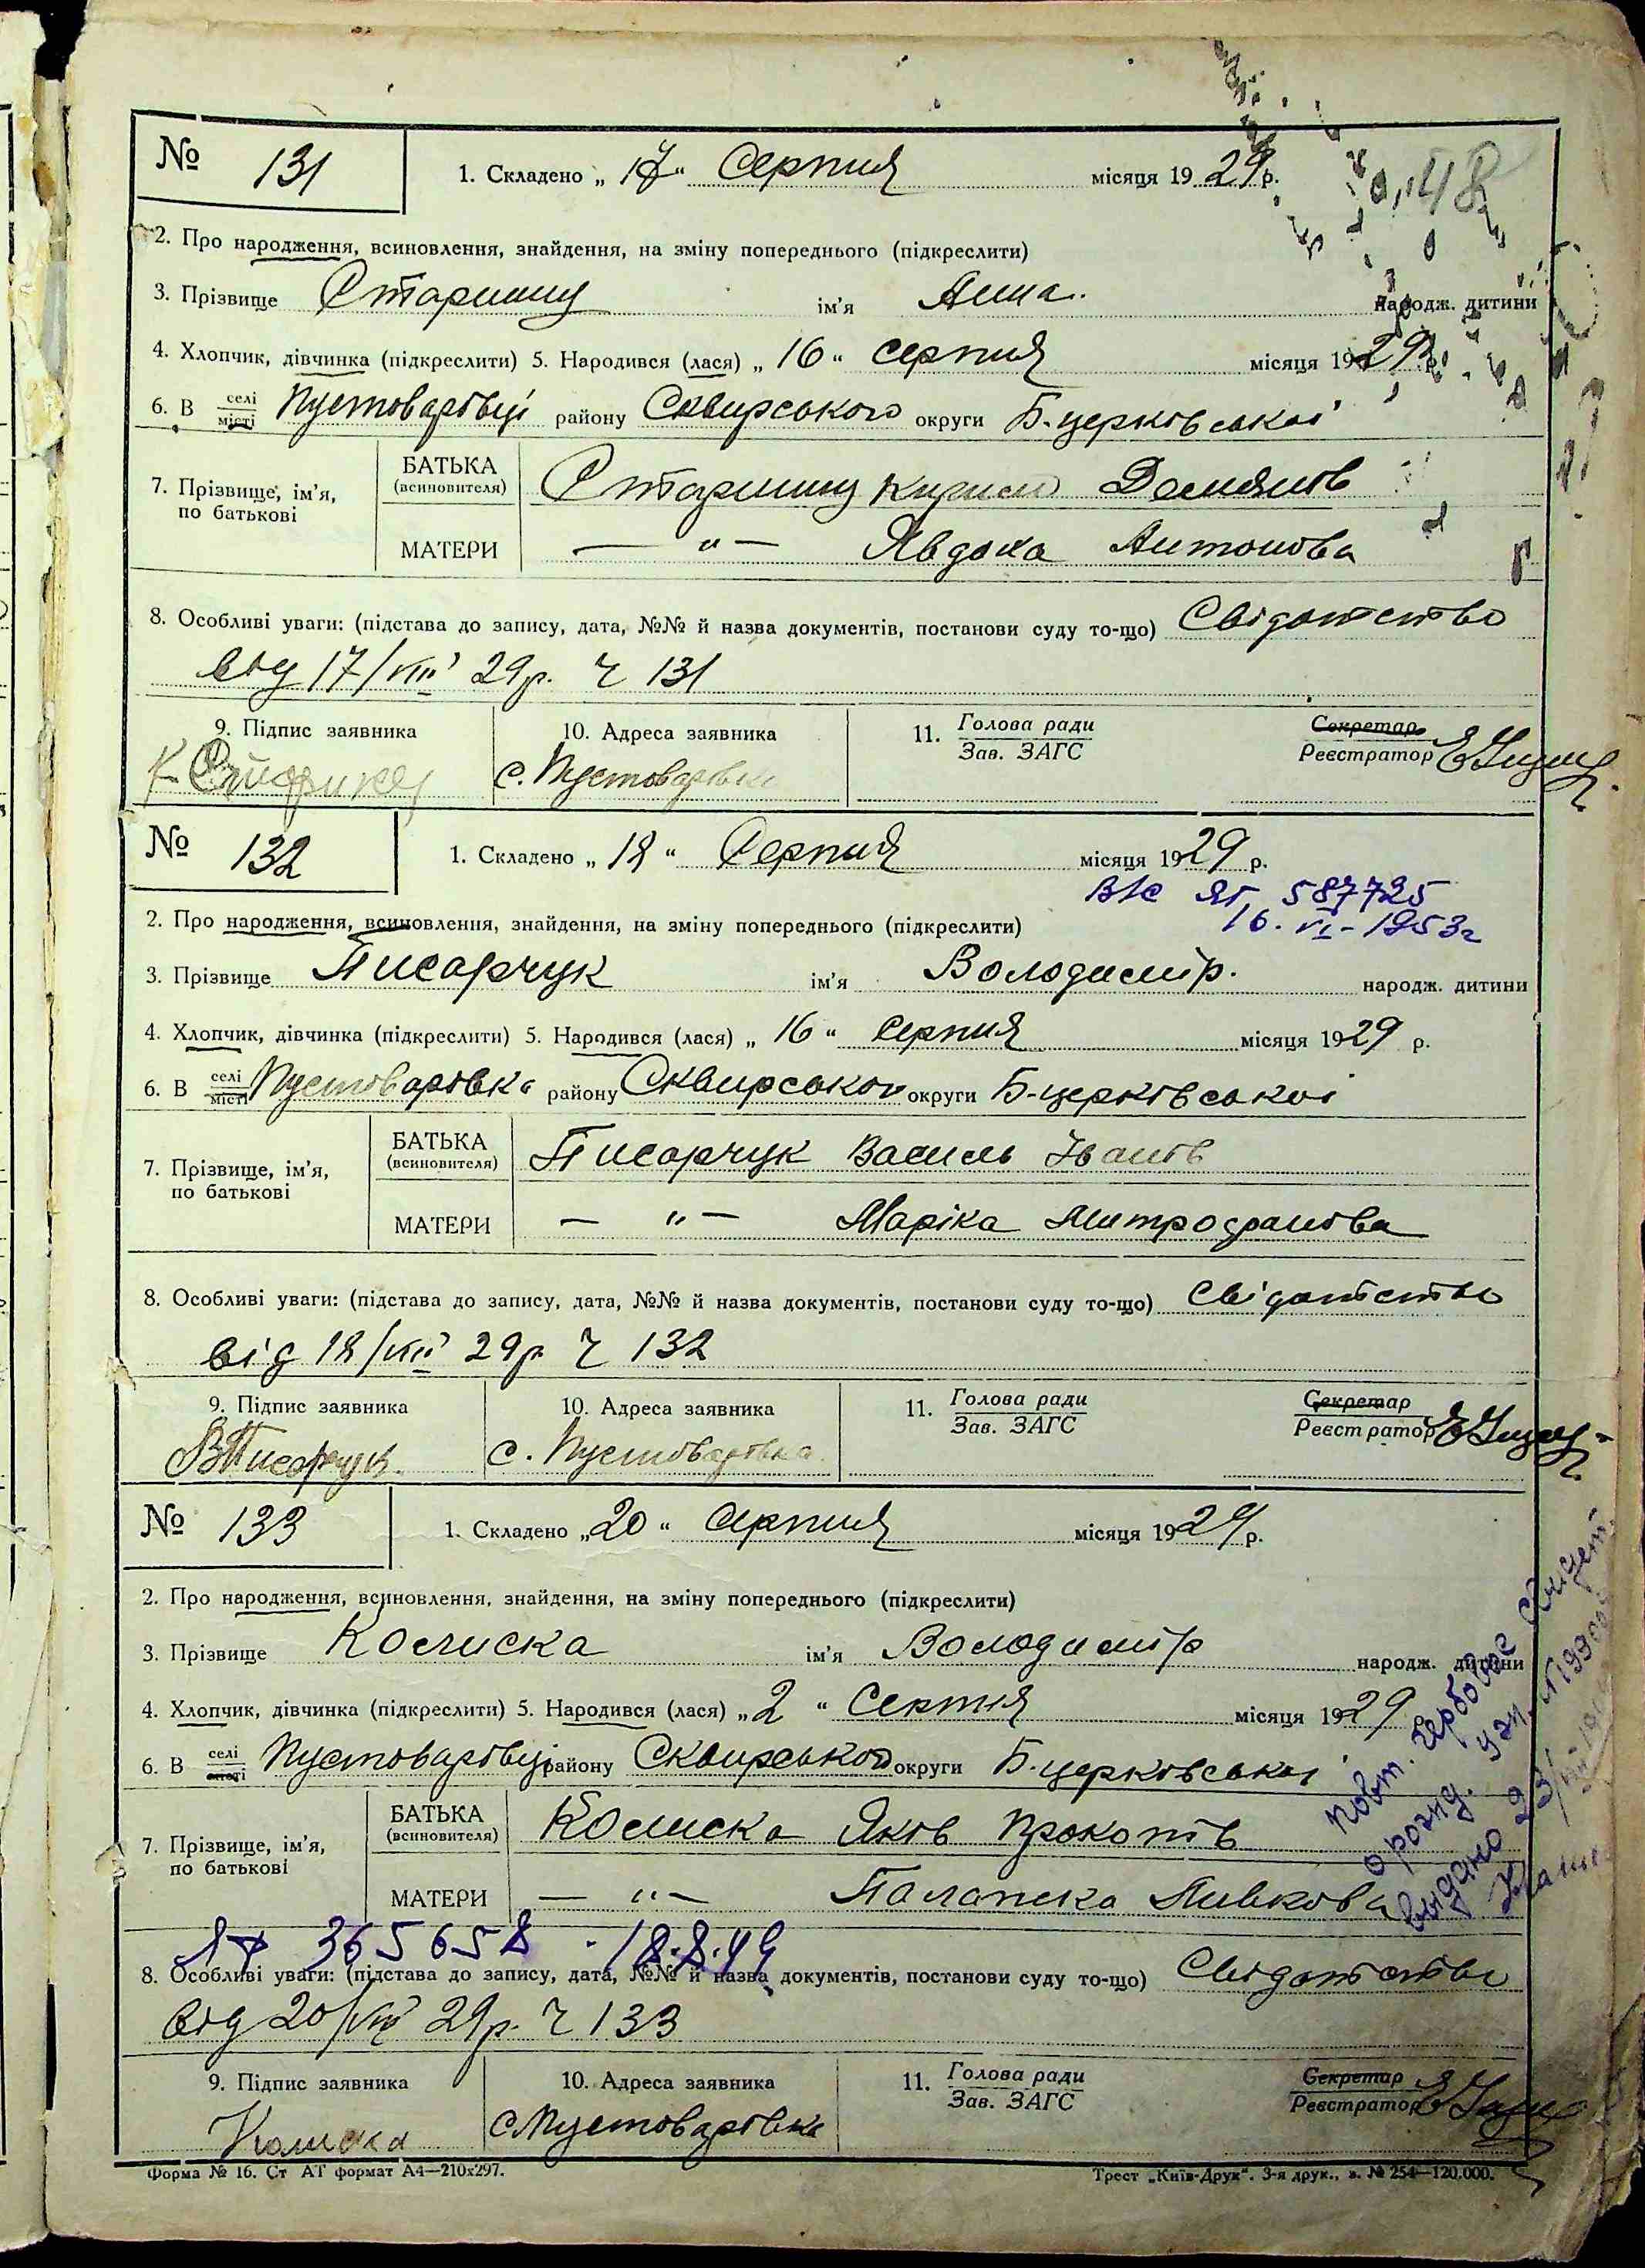 № 131
1. Складено „ 17 “ Серпня місяця 19 29 р.
0,48
2. Про народження, всиновлення, знайдення, на зміну попереднього (підкреслити)
3. Прізвище ім'я Анна народж. дитини
4. Хлопчик, дівчинка (підкреслити) 5. Народився (лася) „ 16 “ серпня місяця 19 29 р.
6. В селі місті Пустоварівці району Сквирського округи Б-церківської
7. Прізвище, ім'я, по батькові
БАТЬКА (всиновителя) Демянів
МАТЕРИ — „ — Явдоха Антонова
8. Особливі уваги: (підстава до запису, дата, №№ й назва документів, постанови суду то-що) Свідотство
від 17/VIII 29р. Ч 131
9. Підпис заявника
10. Адреса заявника
11. Голова ради Зав. ЗАГС
Секретар Реєстратор
с. Пустоварівка
№ 132
1. Складено „ 18 “ Серпня місяця 19 29 р.
587725
16. VI - 1953г
2. Про народження, всиновлення, знайдення, на зміну попереднього (підкреслити)
3. Прізвище Писарчук ім'я Володимір. народж. дитини
4. Хлопчик, дівчинка (підкреслити) 5. Народився (лася) „ 16 “ серпня місяця 19 29 р.
6. В селі місті Пустоварівка району Сквирського округи Б-церківської
7. Прізвище, ім'я, по батькові
БАТЬКА (всиновителя) Писарчук Василь Іванів
МАТЕРИ — „ — Маріка Митрофанова
8. Особливі уваги: (підстава до запису, дата, №№ й назва документів, постанови суду то-що) Свідотство
від 18/VIII 29р Ч 132
9. Підпис заявника
10. Адреса заявника
11. Голова ради Зав. ЗАГС
Секретар Реєстратор
В Писарчук.
с. Пустоварівка
№ 133
1. Складено „ 20 “ серпня місяця 19 29 р.
2. Про народження, всиновлення, знайдення, на зміну попереднього (підкреслити)
3. Прізвище Колиска ім'я Володимір народж. дитини
4. Хлопчик, дівчинка (підкреслити) 5. Народився (лася) „ 2 “ Серпня місяця 19 29
6. В селі місті Пустоварівці району Сквирського округи Б-церковської
7. Прізвище, ім'я, по батькові
БАТЬКА (всиновителя) Колиска Яків Прокопів
МАТЕРИ — „ — Палажка
повт. гербовое
о рожд.
выдано 23/
365658 . 18.8.49
8. Особливі уваги: (підстава до запису, дата, №№ й назва документів, постанови суду то-що) Свідотство
від 20/VIII 29р. Ч 133
9. Підпис заявника
10. Адреса заявника
11. Голова ради Зав. ЗАГС
Секретар Реєстратор
Колиска
с Пустоварівка
Форма № 16. Ст АТ формат А4—210х297.
Трест „Київ-Друк“. 3-я друк., з. № 254—120.000.